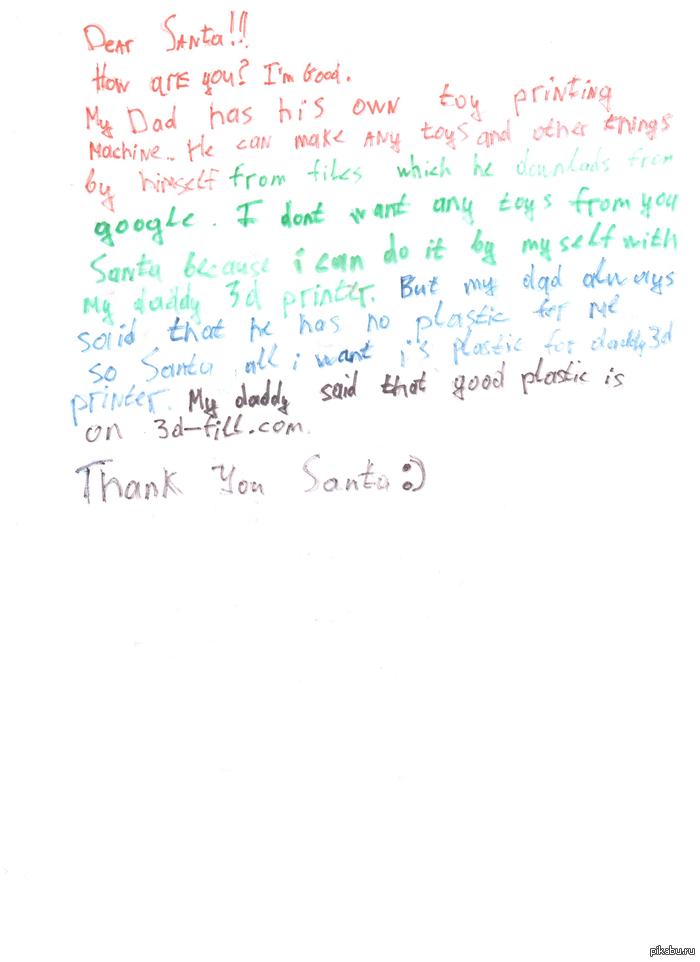 Dear Santa!!!
How are you? I'm Good.
My Dad has his own toy printing
machine.. He can make any toys and other things
by himself from files which he downlads from
google. I dont want any toys from you
Santa because i can do it by my self with
my daddy 3d printer. But my dad always
said that he has no plastic for me
so Santa all i want is plastic for daddy 3d
printer. My daddy said that good plastic is
on 3d-fill.com.
Thank You Santa :)
pikabu.ru